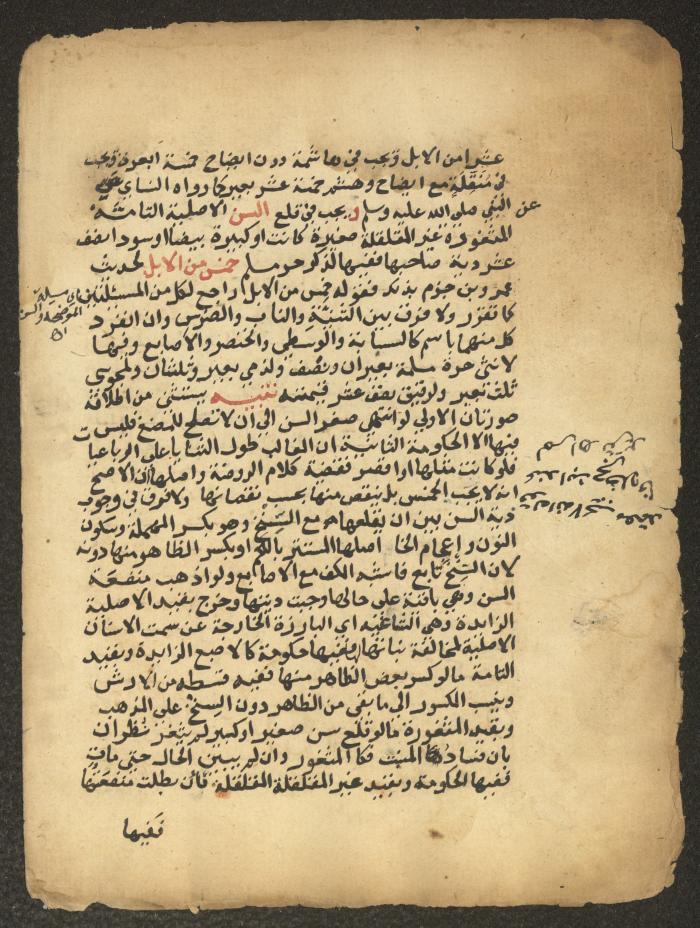 عشرا من الابل ويجب في هاشمة دون ايضاح خمسة ابعرة ويجب
في منقلة مع ايضاح وهشم خمسة عشر بعيرا كما رواه النساي عن
النبي صلى الله عليه وسلم ويجب في قلع السن الاصلية التامة
المثغورة غير المقلقلة صغيرة كانت او كبيرة بيضا او سودا نصف
عشر دية صاحبها ففيها لذكر حر مسلم خمس من الابل لحديث
عمرو بن حزم بذلك فقوله خمس من الابل راجع لكل من المسئلتين
كما تقرر ولا فرق بين الثنية والناب والضرس وان انفرد
كل منهما باسم كالسبابة والوسطى والخنصر والاصابع وفيها
لانثى حرة مسلمة بعيران ونصف ولذمي بعير وثلثان ولمجوسي
ثلث بعير ولرقيق نصف عشر قيمته تنبيه يستثنى من اطلاقه
صورتان الاولى لو انتهى صغر السن الى ان لا تصلح للمضغ فليس
فيها الا الحكومة الثانية ان الغالب طول الثنايا على الرباعيات
فلو كانت مثلها او اقصر فقضية كلام الروضة واصلها ان الاصح
انه لا يجب الخمس بل ينقص منها بحسب نقصانها ولا فرق في وجوب
دية السن بين ان يقلعها مع السنخ وهو بكسر المهملة وسكون
النون واعجام الخا اصلها المستتر باللحم او بكسر الظاهر منها دونه
لان السنخ تابع فاشبه الكف مع الاصابع ولو اذهب منفعة
السن وهي باقية على حالها وجبت ديتها وخرج بقيد الاصلية
الزايدة وهي الشاغية اي البارزة الخارجة عن سمت الاسنان
الاصلية لمخالفة نباتها لها ففيها حكومة كالاصبع الزايدة وبقيد
التامة ما لو كسر بعض الظاهر منها ففيه قسطه من الارش
وينسب المكسور الى ما بقي من الظاهر دون السنخ على المذهب
وبقيد المثغورة ما لو قلع سن صغير او كبير لم يثغر نظر ان
بان فساد المنبت فكالمثغور وان لم يتبين الحال حتى مات
ففيها الحكومة وبقيد غير المقلقلة المقلقلة فان بطلت منفعتها
ففيها